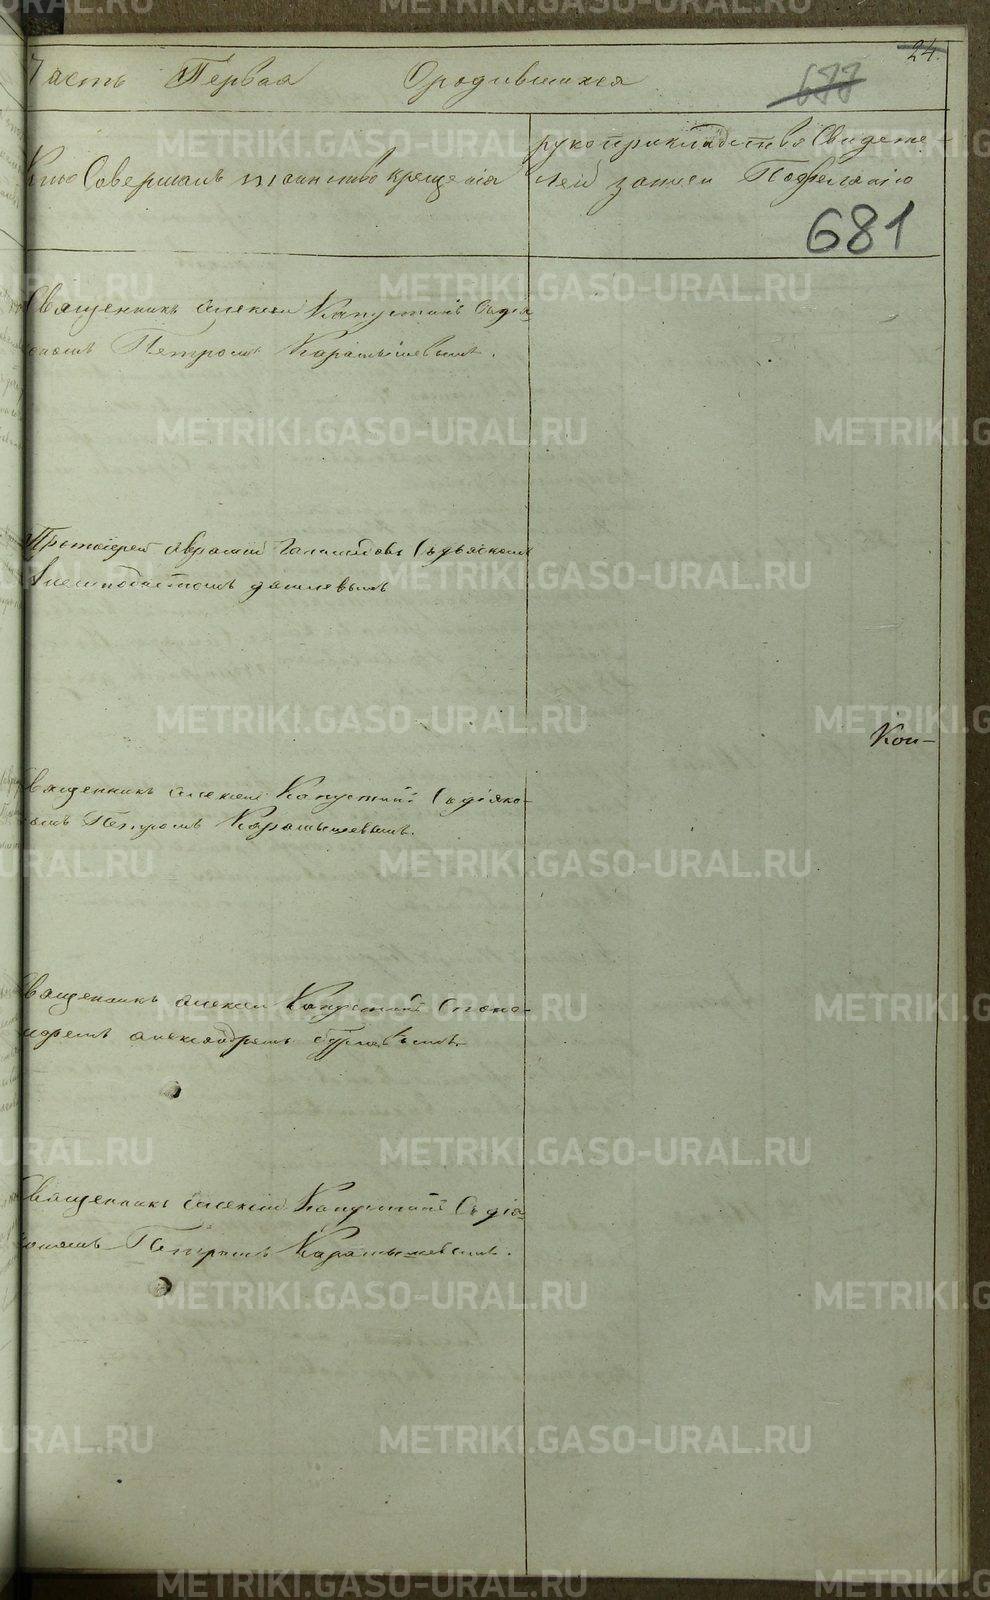 24.
Часть Первая О родившихся
677
Кто Совершалъ таинство крещенія
рукоприкладство Свидете-
лей записи По желанію
681
Священникъ Алексей Капустинъ Съ діа-
кономъ Петромъ Карамышевымъ.
Протоіерей Авраамій Съ дьякономъ
Кон-
Священникъ Алексей Капустинъ Съ діако-
номъ Петромъ Карамышевымъ.
Священникъ Алексей Капустинъ С поно-
маремъ Александромъ
Священникъ Алексей Капустинъ Съ діа-
кономъ Петромъ Карамышевымъ.
METRIKI.GASO-URAL.RU